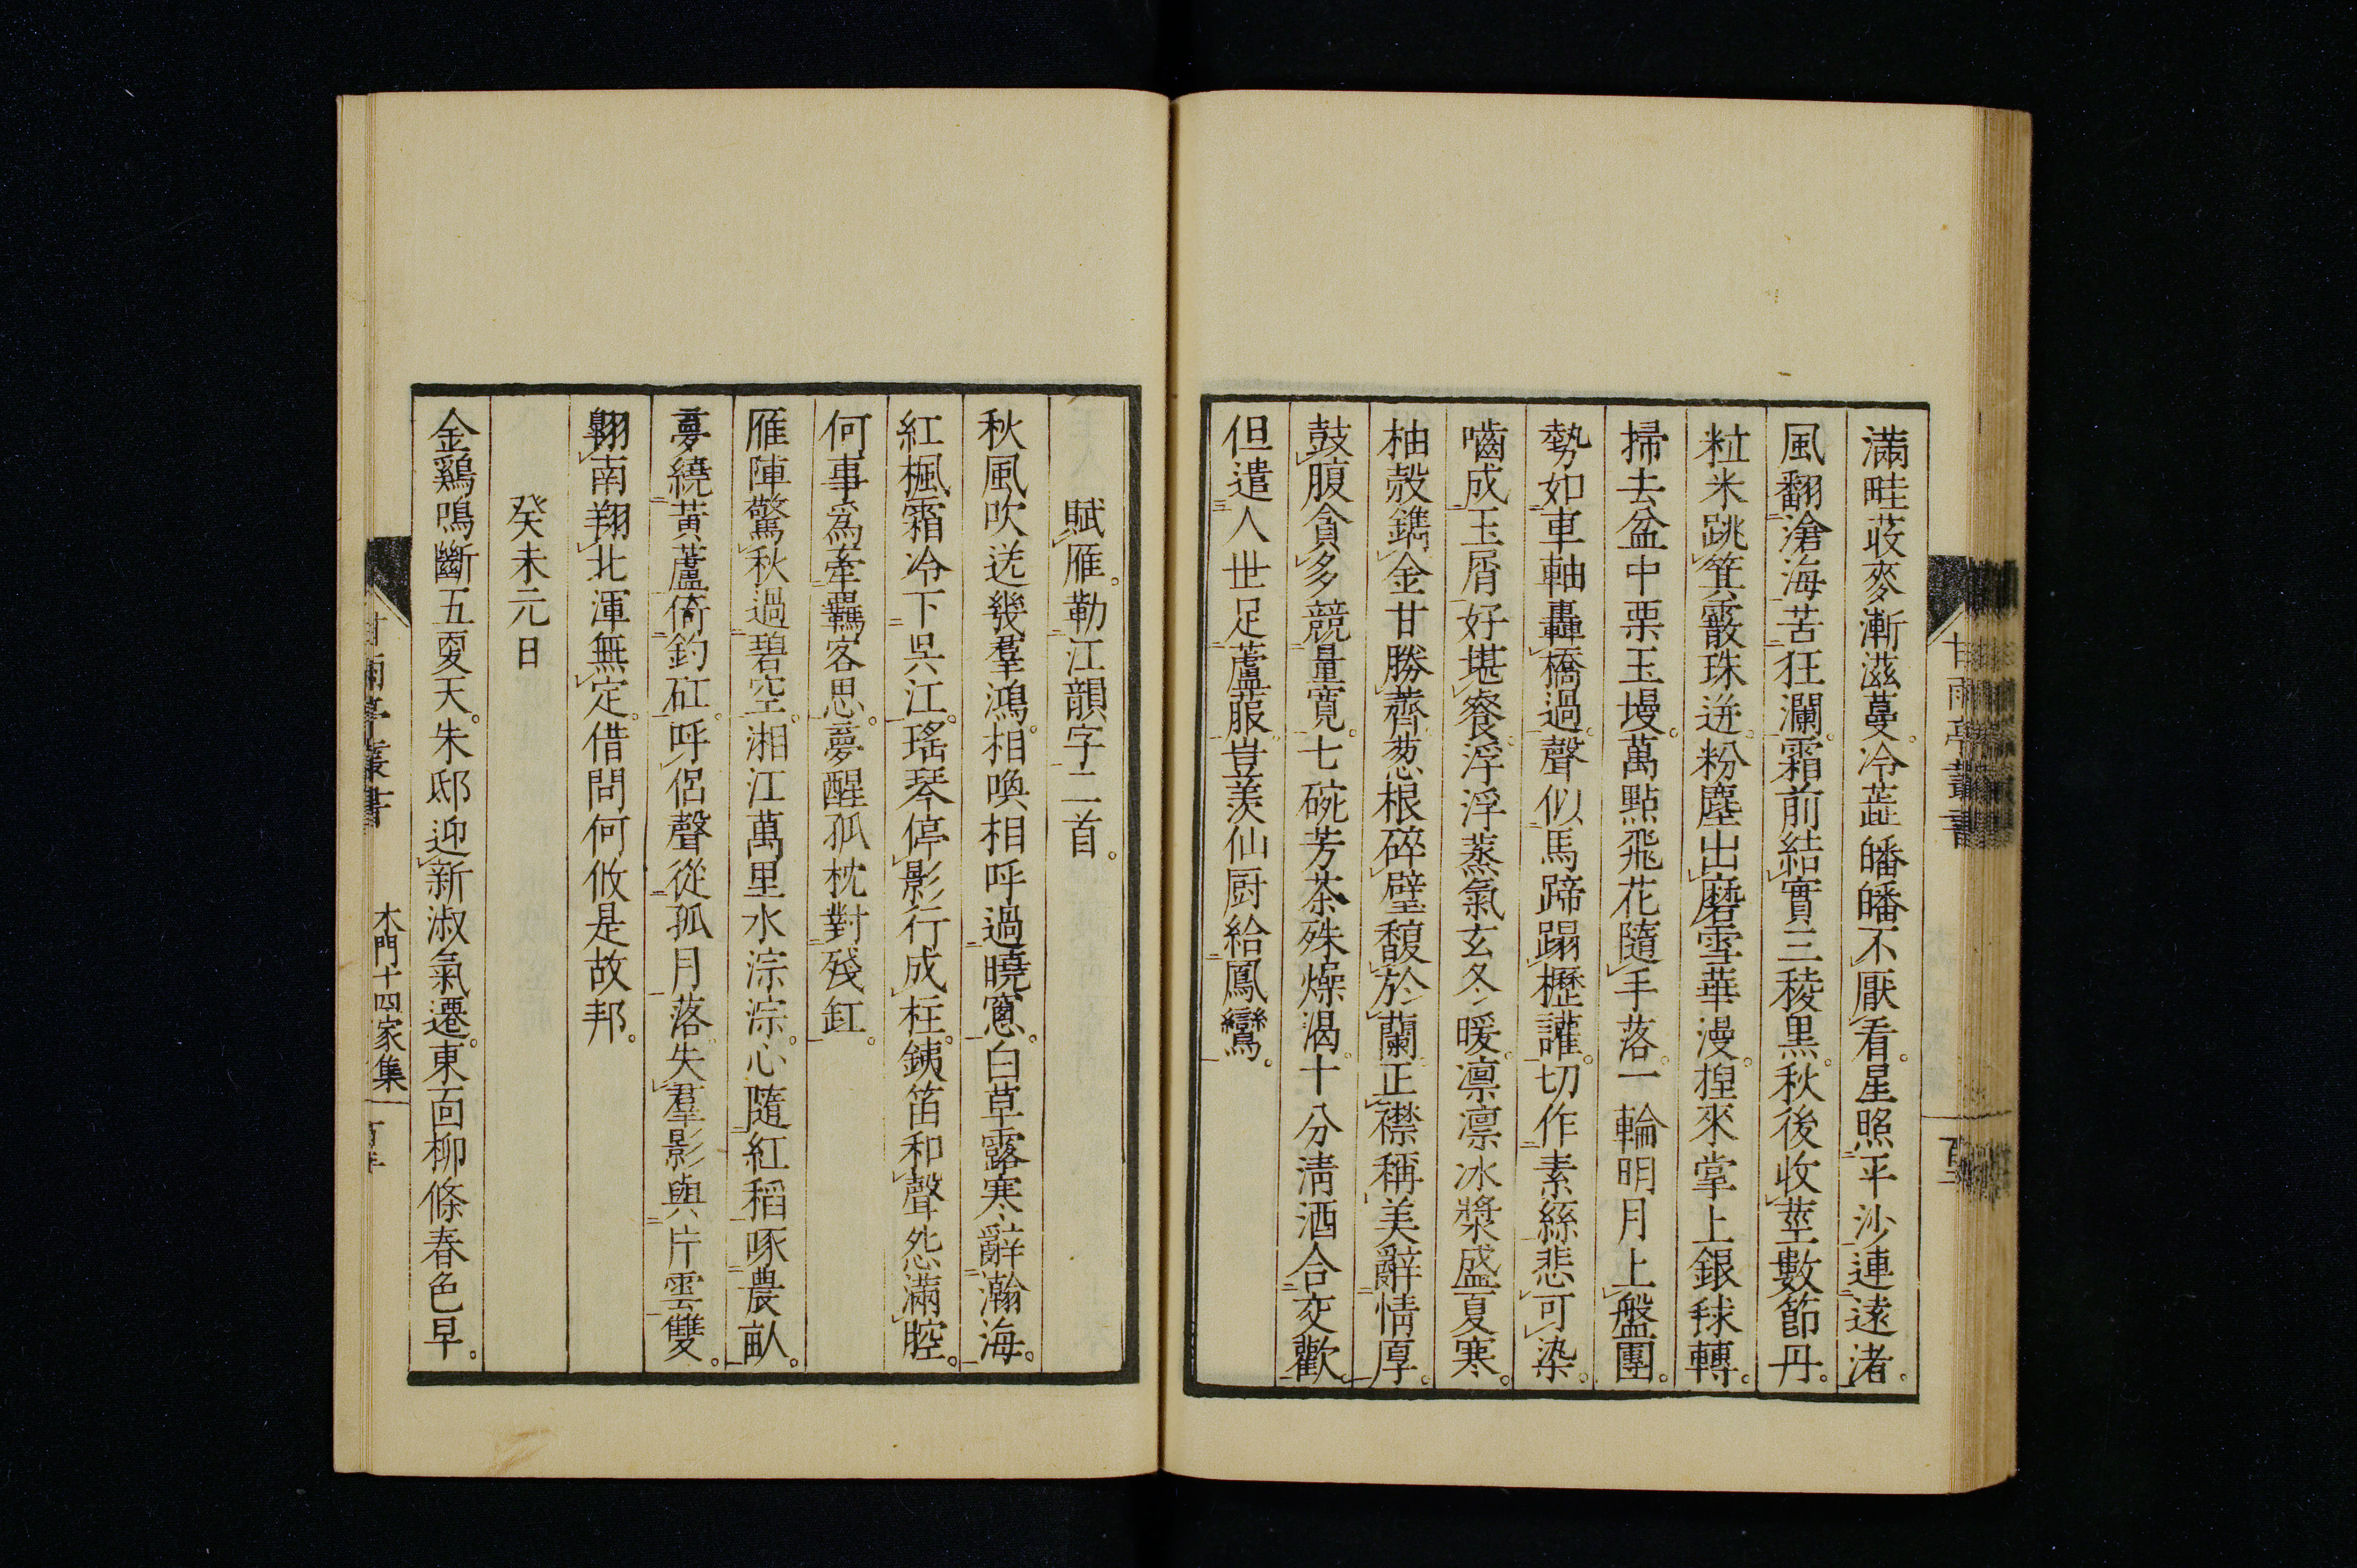 滿畦荍麥漸滋蔓。冷蕋皤皤不厭看。星照平沙連遠渚。
風翻滄海苦狂瀾。霜前結實三稜黒。秋後收莖數節丹。
粒米跳箕霰珠迸。粉塵出磨雪華漫。揑來掌上銀毬轉。
掃去盆中栗玉墁。萬點飛花隨手落。一輪明月上盤團。
勢如車軸轟橋過。聲似馬蹄蹋櫪讙。切作素絲悲可染。
嚙成玉屑好堪餐。浮浮蒸氣玄冬暖。凛凛冰漿盛夏寒。
柚殼鐫金甘勝薺。葱根碎璧馥於蘭。正襟稱美辭情厚。
鼓腹貪多競量寛。七碗芳茶殊燥渴。十分淸酒合交歡。
但遣人世足蘆菔。豈羨仙厨給鳳鸞。
甘雨亭叢書
賦雁。勒江韻字二首。
秋風吹送幾羣鴻。相喚相呼過曉窻。白草露寒辭瀚海。
紅楓霜冷下吳江。瑤琴停影行成柱。銕笛和聲怨滿腔。
何事爲牽羈客思。夢醒孤枕對殘釭。
雁陣驚秋過碧空。湘江萬里水淙淙。心隨紅稻啄農畝。
夢繞黃蘆倚釣矼。呼侶聲從孤月落。失羣影與片雲雙。
翺南翔北渾無定。借問何攸是故邦。
癸未元日
金鷄鳴斷五更天。朱邸迎新淑氣遷。東面柳條春色早。
甘雨亭叢書
木門十四家集